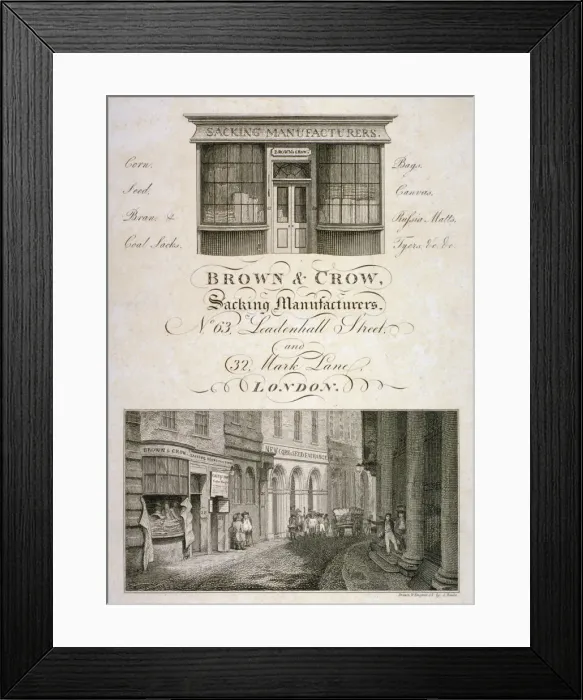 SACKING MANUFACTURERS.
BROWN & CROW.
Corn.
Seed.
Bran &
Coal Sacks.
Bags.
Canvas.
Russia Matts.
Tyers, &c. &c.
BROWN & CROW,
Sacking Manufacturers,
No. 63, Leadenhall Street,
and
32, Mark Lane,
LONDON.
BROWN & CROW, SACKING
NEW CORN & SEED EXCHANGE